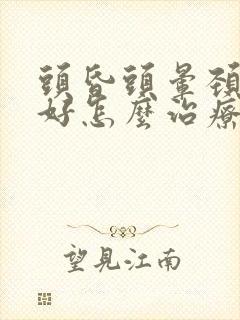 頭昏頭暈頸
好怎麼治療
望見江南